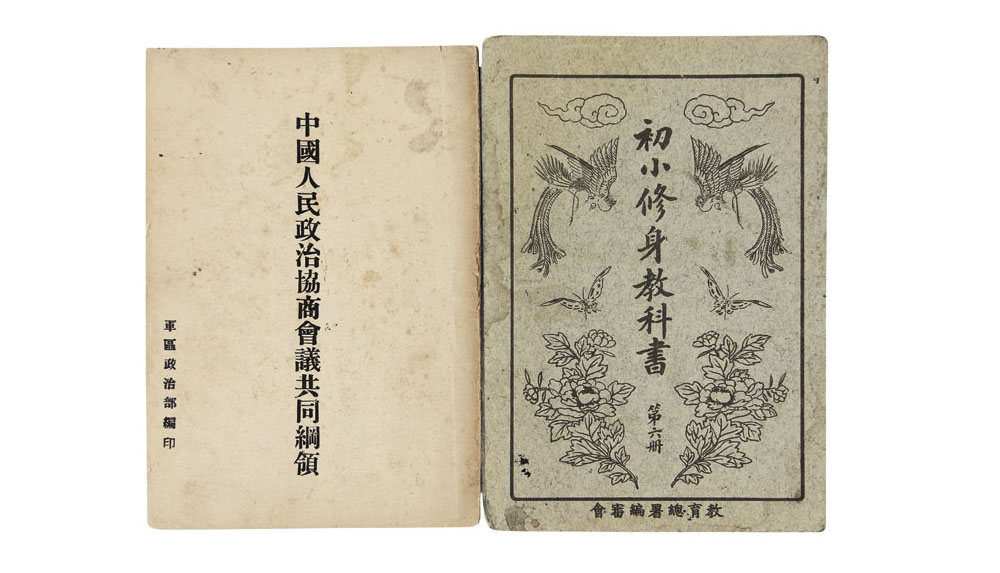 中國人民政治協商會議共同綱領
軍區政治部編印
初小修身教科書
第六冊
教育總署編審會